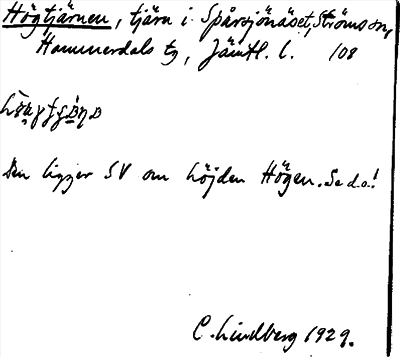 Högtjärnen, tjärn i Spårsjönäset, Ströms sn,
Hammerdals tg, Jämtl. l. 108
Den ligger SV om höjden Högen. Se d.o.!
C. Lindberg 1929.